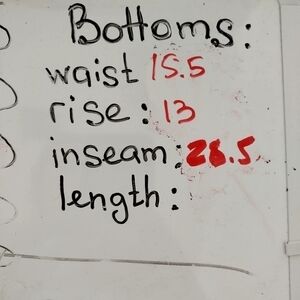 Bottoms:
waist 15.5
rise: 13
inseam: 28.5
length: